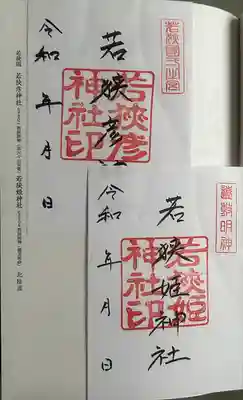 若狭国一之宮
若狭彦神
若狭彦神社印
令和 年 月 日
遠敷明神
若狭姫神社
若狭姫神社印
令和 年 月 日
若狭国 若狭彦神社
若狭姫神社
北陸道